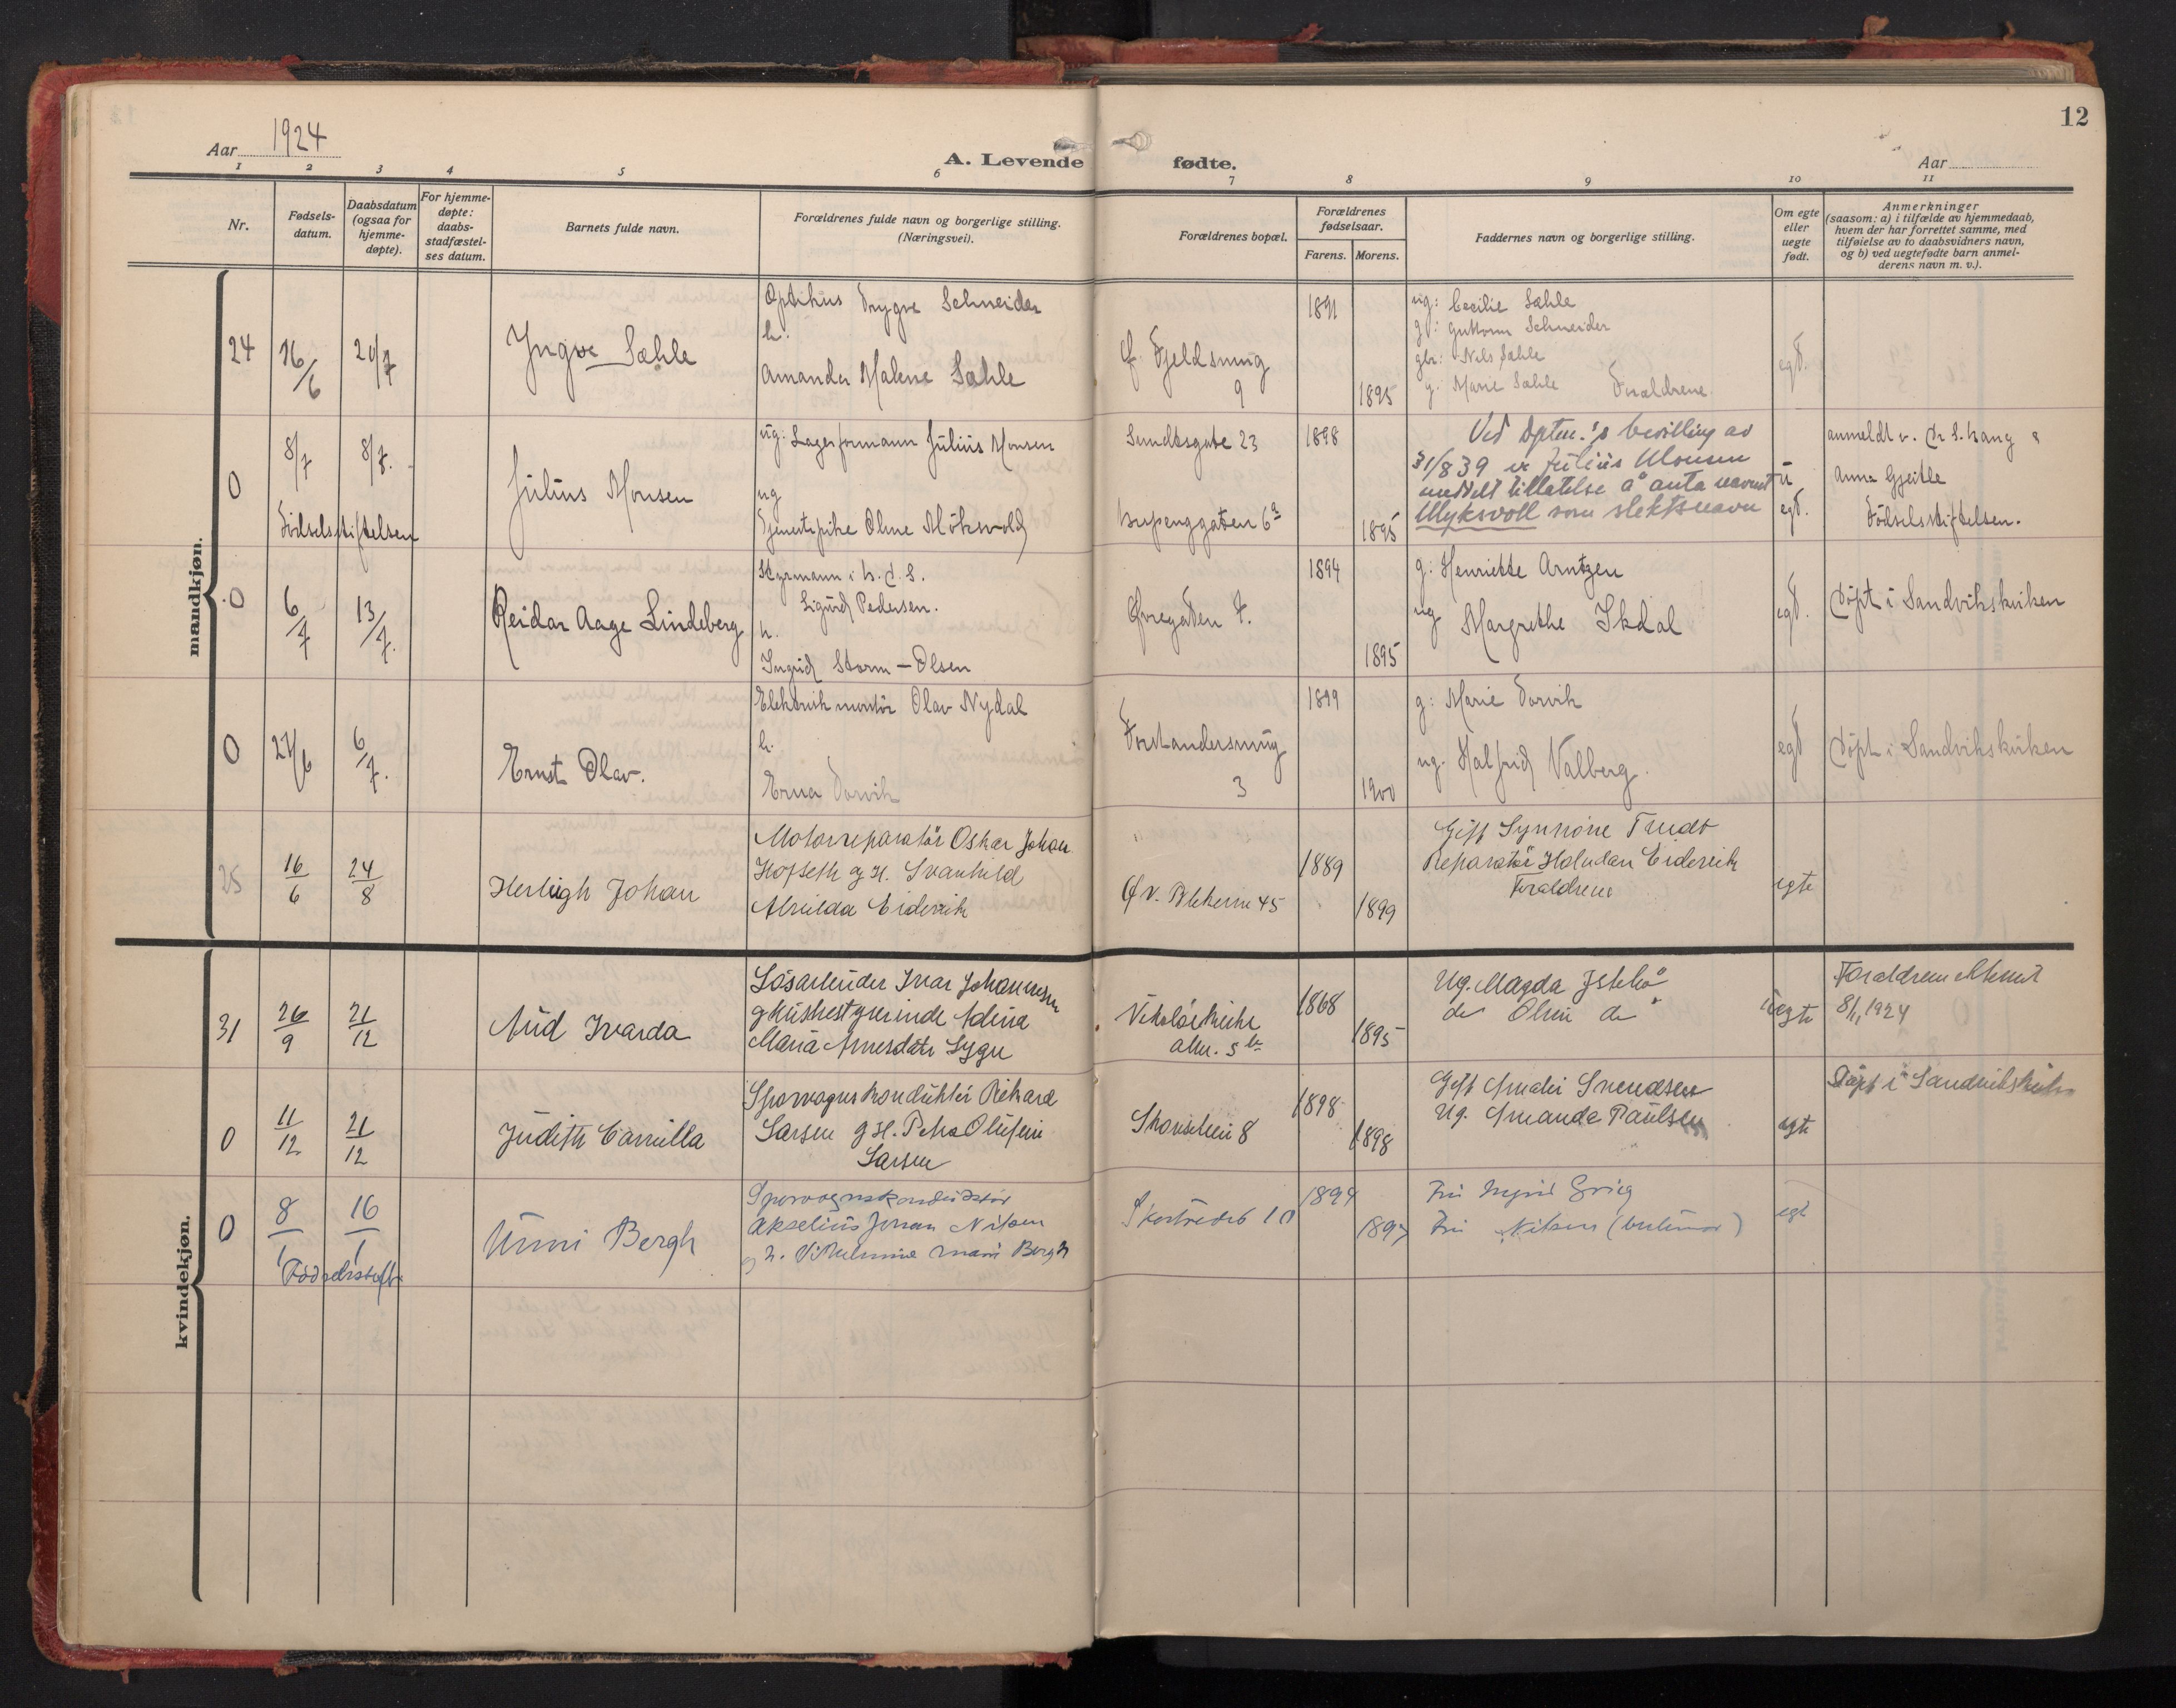 12
Aar 1924
A. Levende fødte.
Aar
1 2 3 4 5 6 7 8 9 10 11
Nr.
Fødsels-
datum.
Daabsdatum
(ogsaa for
hjemme-
døpte).
For hjemme-
døpte:
daabs-
stadfæstel-
ses datum.
Barnets fulde navn.
Forældrenes fulde navn og borgerlige stilling.
(Næringsvei).
Forældrenes bopæl.
Forældrenes
fødselsaar.
Farens. Morens.
Faddernes navn og borgerlige stilling.
Om egte
eller
uegte
født.
Anmerkninger
(saasom: a) i tilfælde av hjemmedaab,
hvem der har forrettet samme, med
tilføielse av to daabsvidners navn,
og b) ved uegtefødte barn anmel-
derens navn m. v.).
mandkjøn.
24 16/6 20/7
Yngve Sæhle
Optikus Trygve Schneider
h.
Amanda Malene Sæhle
Ø. Fjeldsmug
9
1891
1895
ug: Cecilie Sæhle
g: Guttorm Schneider
gbr: Nils Sæhle
g. Marie Sæhle Foraldrene.
egt.
0 8/7 8/7.
Fødselsstiftelsen
Julius Monsen
ug: Lagerformann Julius Monsen
ug
Tjenestepike Oline Möksvold
Sundtsgate 23
1898
1895
Ved Dptm.'s bevilling av
31/8 39 er Julius Monsen
meddelt tillatelse å anta navnet
Myksvoll som slektsnavn
u
egt.
anmeldt v. Dr S. Haug &
Anna Gjeitle
Fødselsstiftelsen.
0 6/7 13/7.
Reidar Aage Lindeberg
Styrmann i
Sigurd Pedersen.
h.
Ingrid Storm-Olsen
Øvregaten 7.
1894
1895
g: Henriette Arntzen
ug Margrethe Ikdal
egt.
Døpt i Sandvikskirken
0 27/6 6/7.
Ernst Olav.
Elektrisk montör Olav Nydal
h.
Erna Torvik
Forstandersmug
3
1899
1900
g: Marie Torvik
ug. Halfrid Valberg.
egt
Døpt i Sandvikskirken
25 16/6 24/8
Herleigh Johan
Motorreparatör Oskar Johan
Hofseth g H. Svanhild
Alvilda Eidevik
Øv. Blekevei 45
1889
1899
Gift Synnöve Tvedt
Reparatör Halvdan Eidevik
Foraldrene
egte
kvindekjøn.
31 26/9 21/12
Aud Ivarda
Lösarbeider Ivar Johannesen
g Hushestyrerinde Adina
Maria Arnesdatr Lygre
Nikolaikirke
alm. 5 b
1868
1895
Ug. Magda
do Olun do
uegte
Foraldrene Attest
8/11 1924
0 11/12 21/12
Judith Camilla
Sporvognskonduktör Rikard
Larsen g H. Petra Olufine
Larsen
Skansehein 8
1898
1898
Gift Amalie Svendsen
Ug. Amanda Paulsen
egte
Døpt i Sandvikskirke
0 8/1 16/1
Fødselsstift.
Unni Bergh
Sporvognskonduktör
Akselius Johan Nilsen
g h. Vilhelmine Marie Bergh
Skostredet 10
1894
1897
Fru Ingrid Grieg
Fru Nilsen (bestemor)
egt